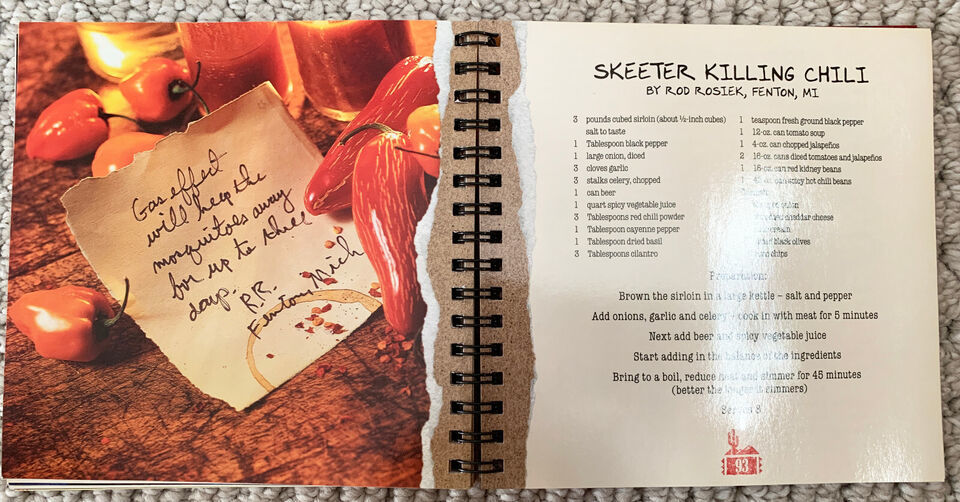 Gas effect
will keep the
mosquitoes away
for up to three
days.
R.R.
Fenton, Mich
SKEETER KILLING CHILI
BY ROD ROSIEK, FENTON, MI
3 pounds cubed sirloin (about ½-inch cubes)
salt to taste
1 Tablespoon black pepper
1 large onion, diced
3 cloves garlic
3 stalks celery, chopped
1 can beer
1 quart spicy vegetable juice
3 Tablespoons red chili powder
1 Tablespoon cayenne pepper
1 Tablespoon dried basil
3 Tablespoons cilantro
1 teaspoon fresh ground black pepper
1 12-oz. can tomato soup
1 4-oz. can chopped jalapeños
2 16-oz. cans diced tomatoes and jalapeños
1 16-oz. can red kidney beans
1 can spicy hot chili beans
onion
cheddar cheese
black olives
chips
Preparation:
Brown the sirloin in a large kettle – salt and pepper
Add onions, garlic and celery – cook in with meat for 5 minutes
Next add beer and spicy vegetable juice
Start adding in the balance of the ingredients
Bring to a boil, reduce heat and simmer for 45 minutes
(better the longer it simmers)
Serves 8
93